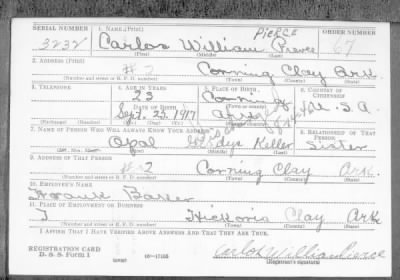 SERIAL NUMBER 1. NAME (Print) PIERCE ORDER NUMBER
3232 Carlos William Pierce 67
(First) (Middle) (Last)
2. ADDRESS (Print)
#2 Corning Clay Ark.
(Number and street or R. F. D. number) (Town) (County) (State)
3. TELEPHONE 4. AGE IN YEARS 5. PLACE OF BIRTH 6. COUNTRY OF CITIZENSHIP
23 Corning
DATE OF BIRTH (Town or county)
Sept. 25, 1917 Ark. U. S. A.
(Exchange) (Number) (Mo.) (Day) (Yr.) (State or country)
7. NAME OF PERSON WHO WILL ALWAYS KNOW YOUR ADDRESS 8. RELATIONSHIP OF THAT PERSON
Opal Gladys Keller Sister
(Mr., Mrs., Miss) (First) (Middle) (Last)
9. ADDRESS OF THAT PERSON
#2 Corning Clay Ark.
(Number and street or R. F. D. number) (Town) (County) (State)
10. EMPLOYER'S NAME
Frank
11. PLACE OF EMPLOYMENT OR BUSINESS
Clay Ark
(Number and street or R. F. D. number) (Town) (County) (State)
I AFFIRM THAT I HAVE VERIFIED ABOVE ANSWERS AND THAT THEY ARE TRUE.
REGISTRATION CARD
D. S. S. Form 1 16—17105 Carlos William Pierce
(Registrant's signature)